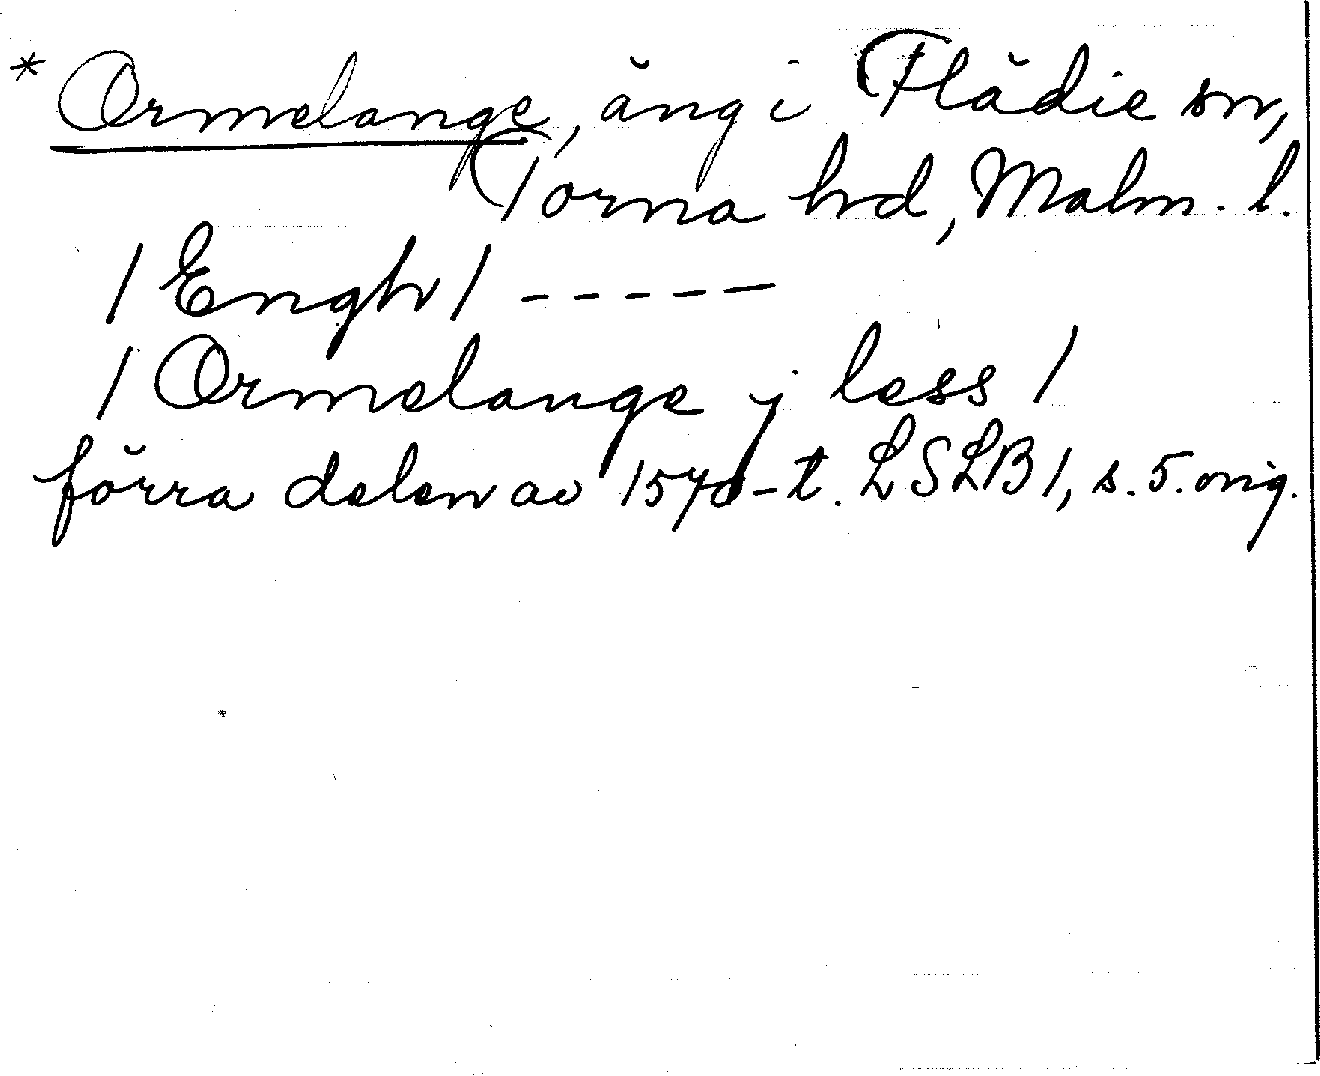 * Ormelange, äng i Flädie sn,
Torna hd, Malm. l.
/ Engh / - - - - -
/ Ormelange j less /
förra delen av 1570-t. LSLB 1, s. 5. orig.